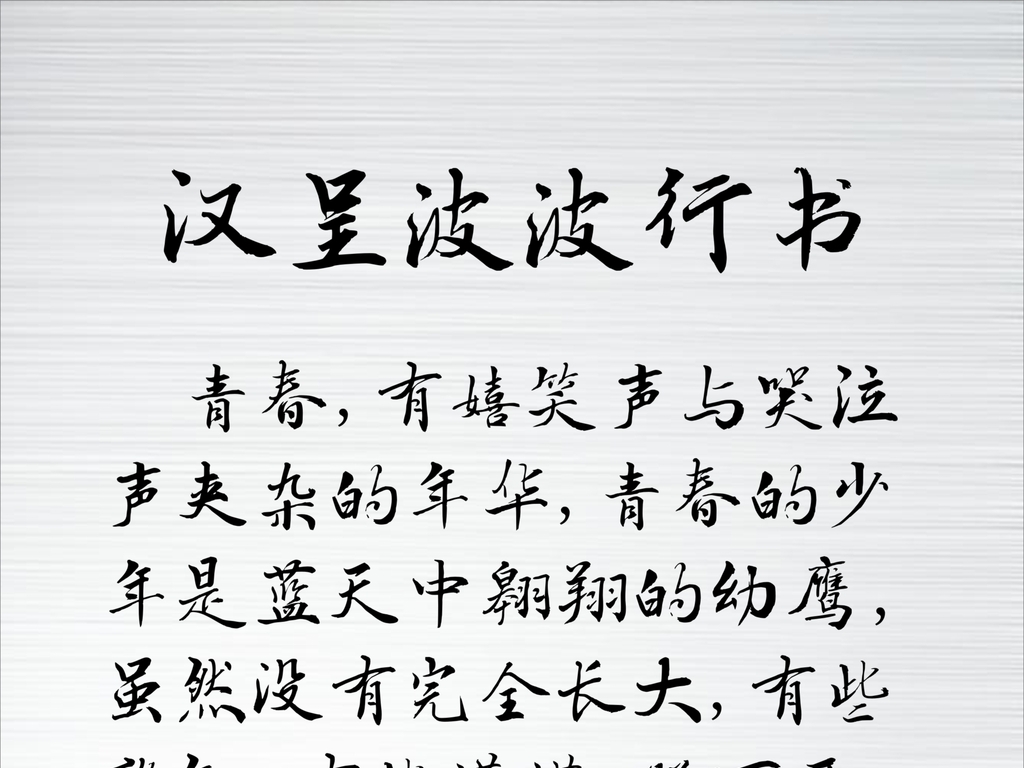 汉呈波波行书
青春，有嬉笑声与哭泣
声夹杂的年华，青春的少
年是蓝天中翱翔的幼鹰，
虽然没有完全长大，有些